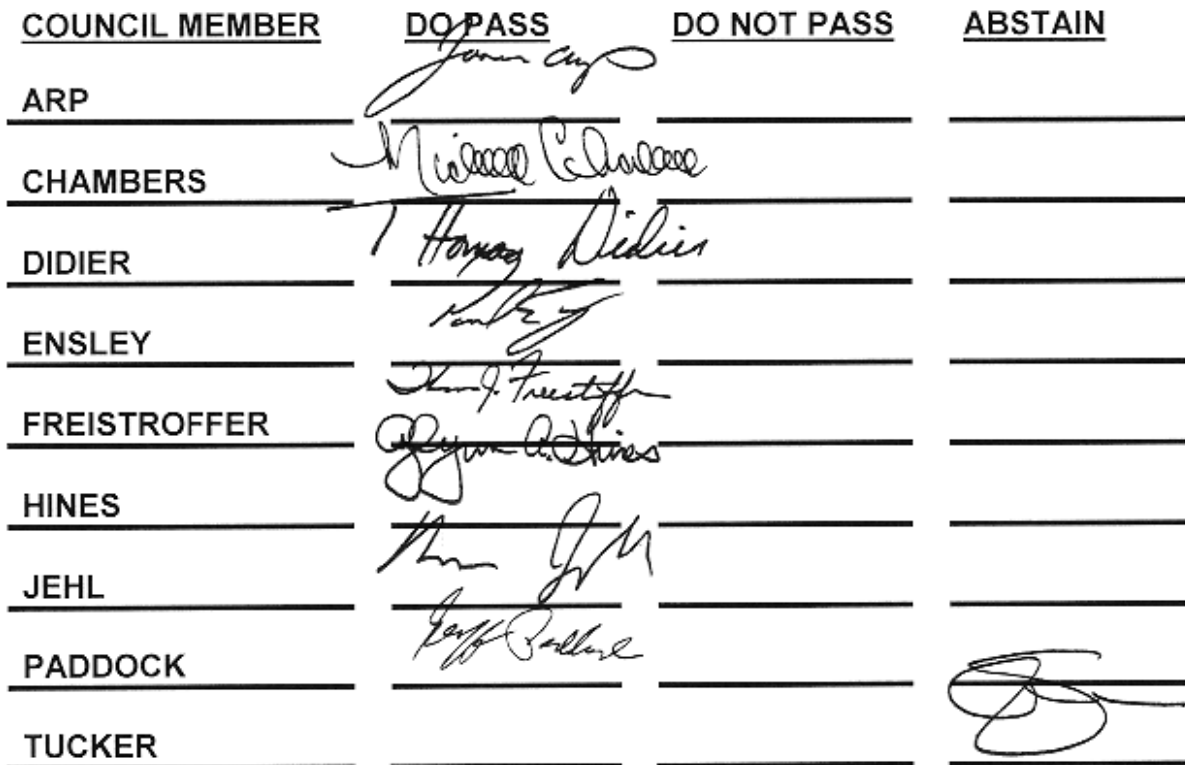 COUNCIL MEMBER DO PASS DO NOT PASS ABSTAIN
ARP
CHAMBERS Michelle Chambers
DIDIER Thomas Didier
ENSLEY
FREISTROFFER J. Freistroffer
HINES Glynn A. Hines
JEHL
PADDOCK Geoff Paddock
TUCKER